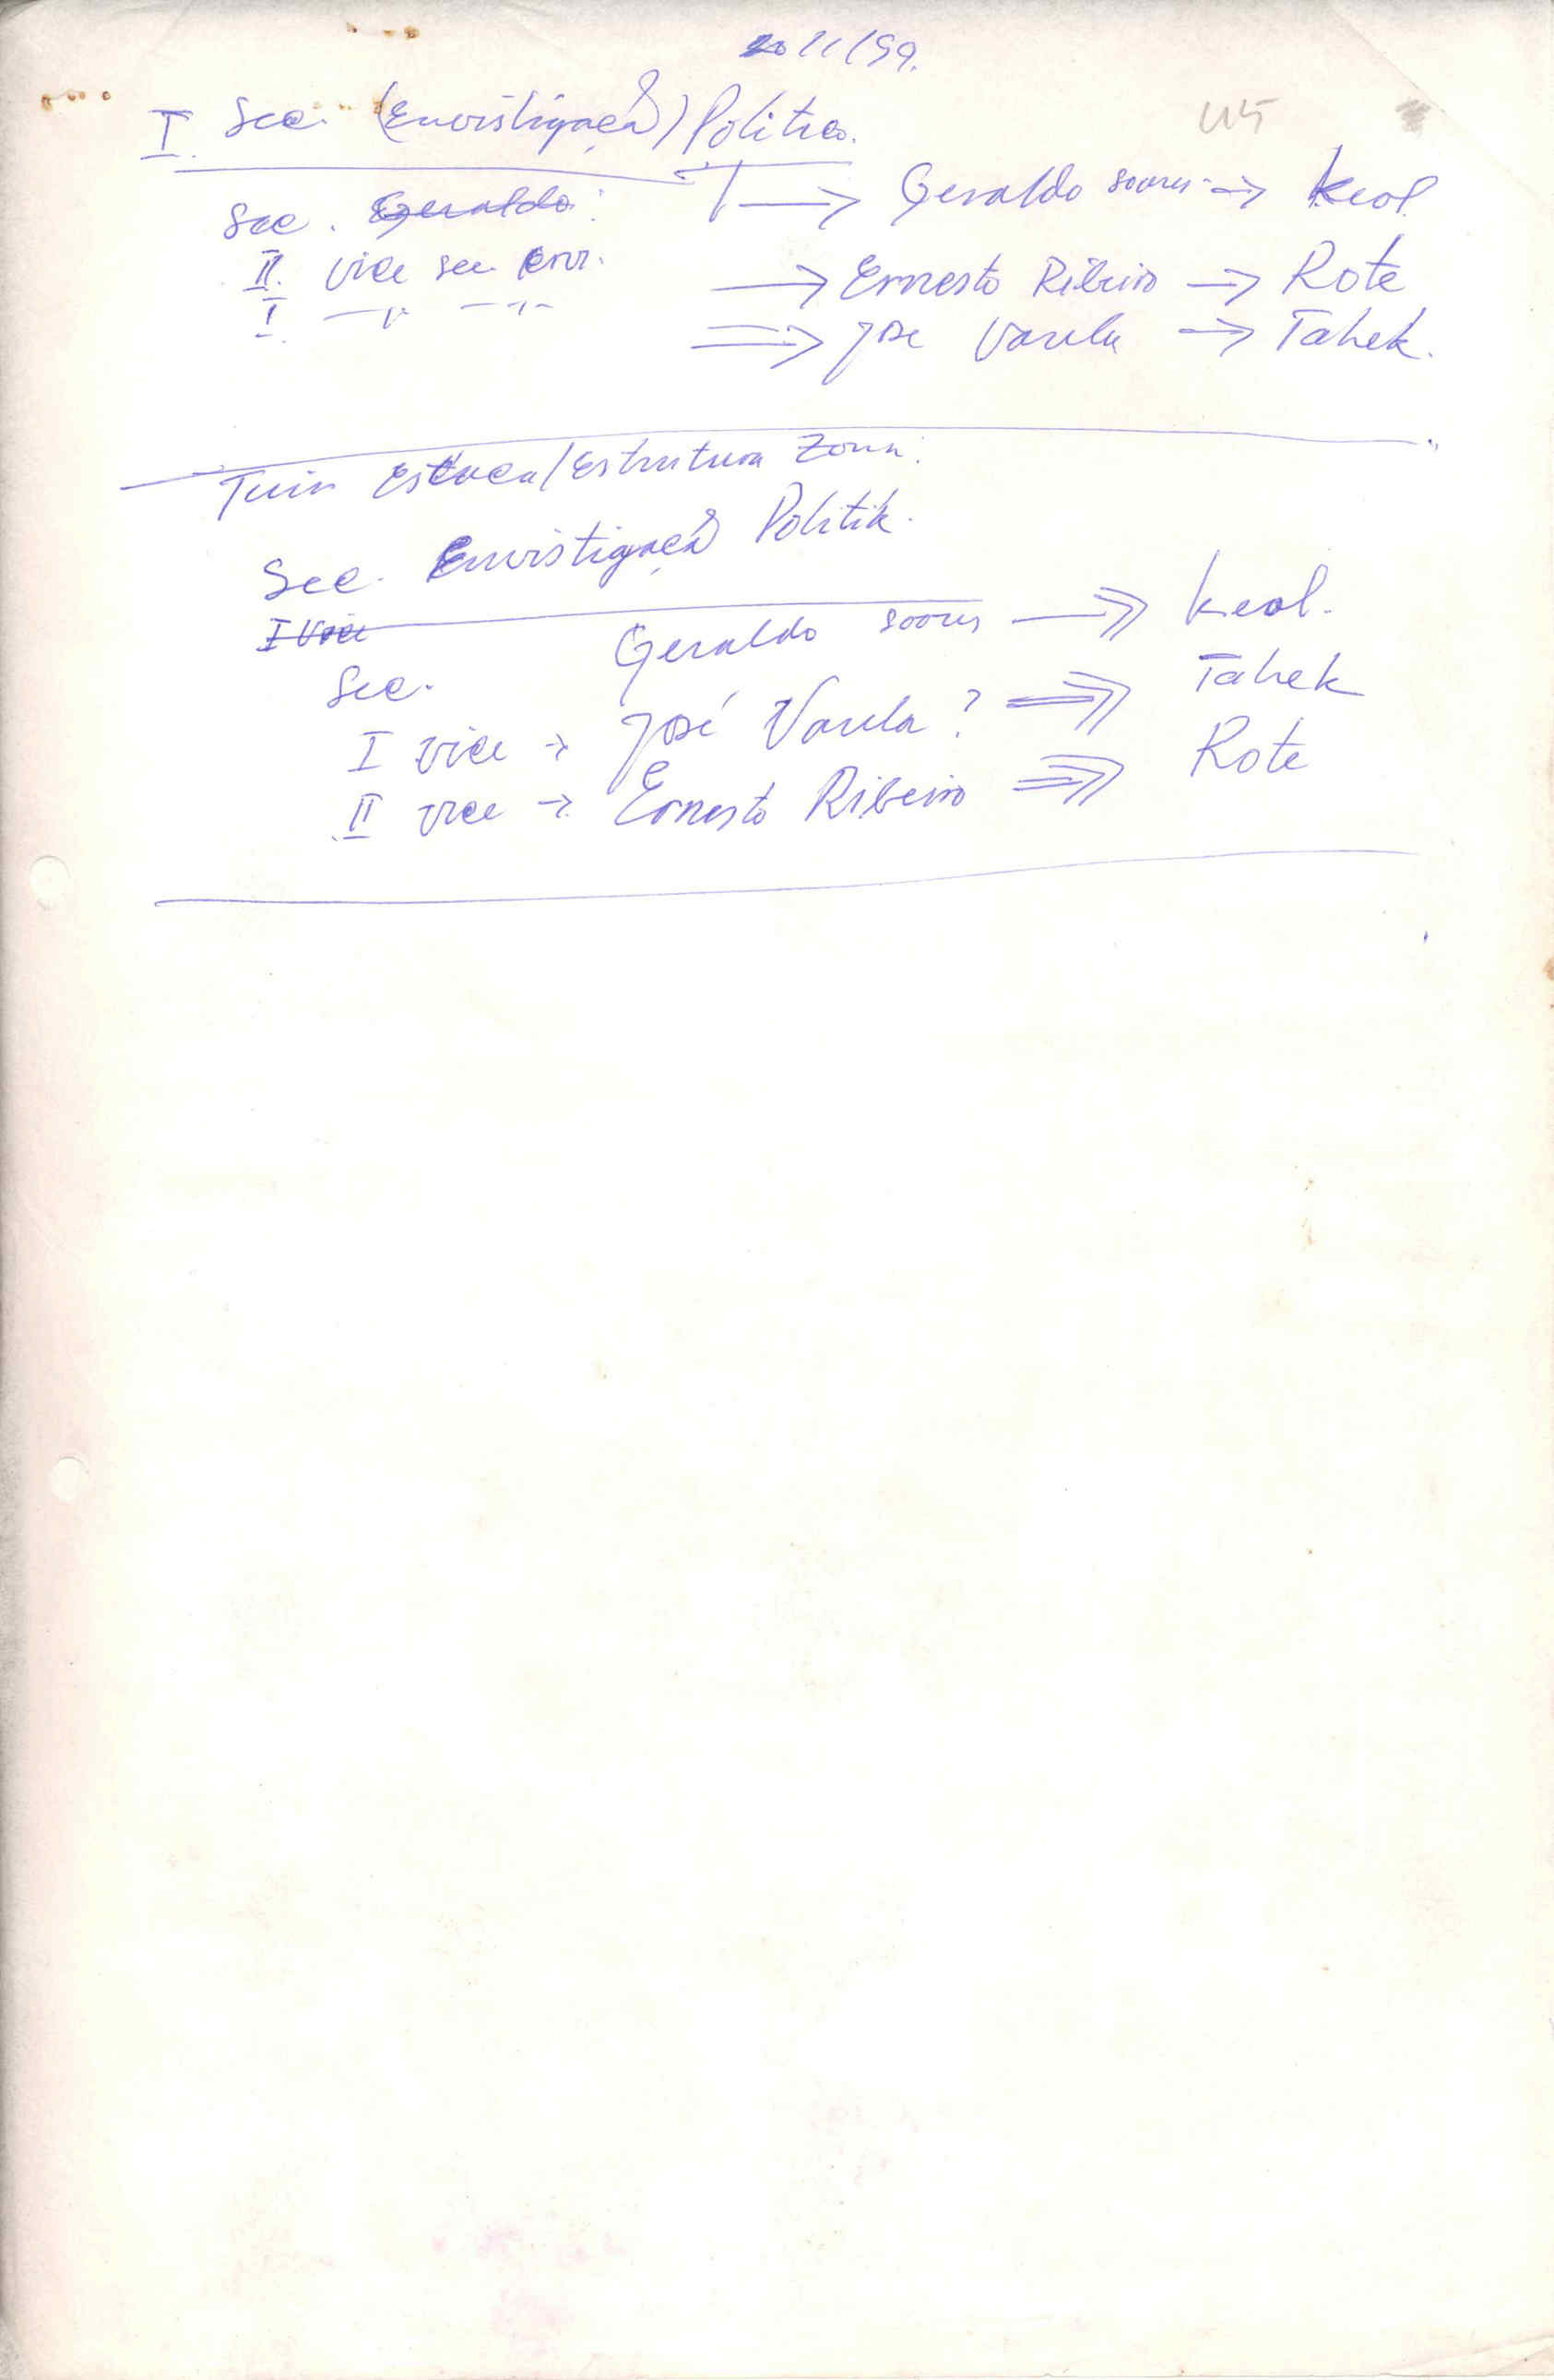 20/1/99.
I. Sec. (Envistigaçaõ) Politica.
U5
Sec. Geraldo: → Geraldo soares → Keol
II. vice sec. env. → Ernesto Ribeiro → Rote
I. —"— —"— ⇒ José Varela → Tahek.
Tuir Estrutura Zona:
Sec. Envistigaçaõ Politik.
I Vice
Sec. Geraldo soares → Keol.
I vice → José Varela? ⇒ Tahek
II vice → Ernesto Ribeiro ⇒ Rote